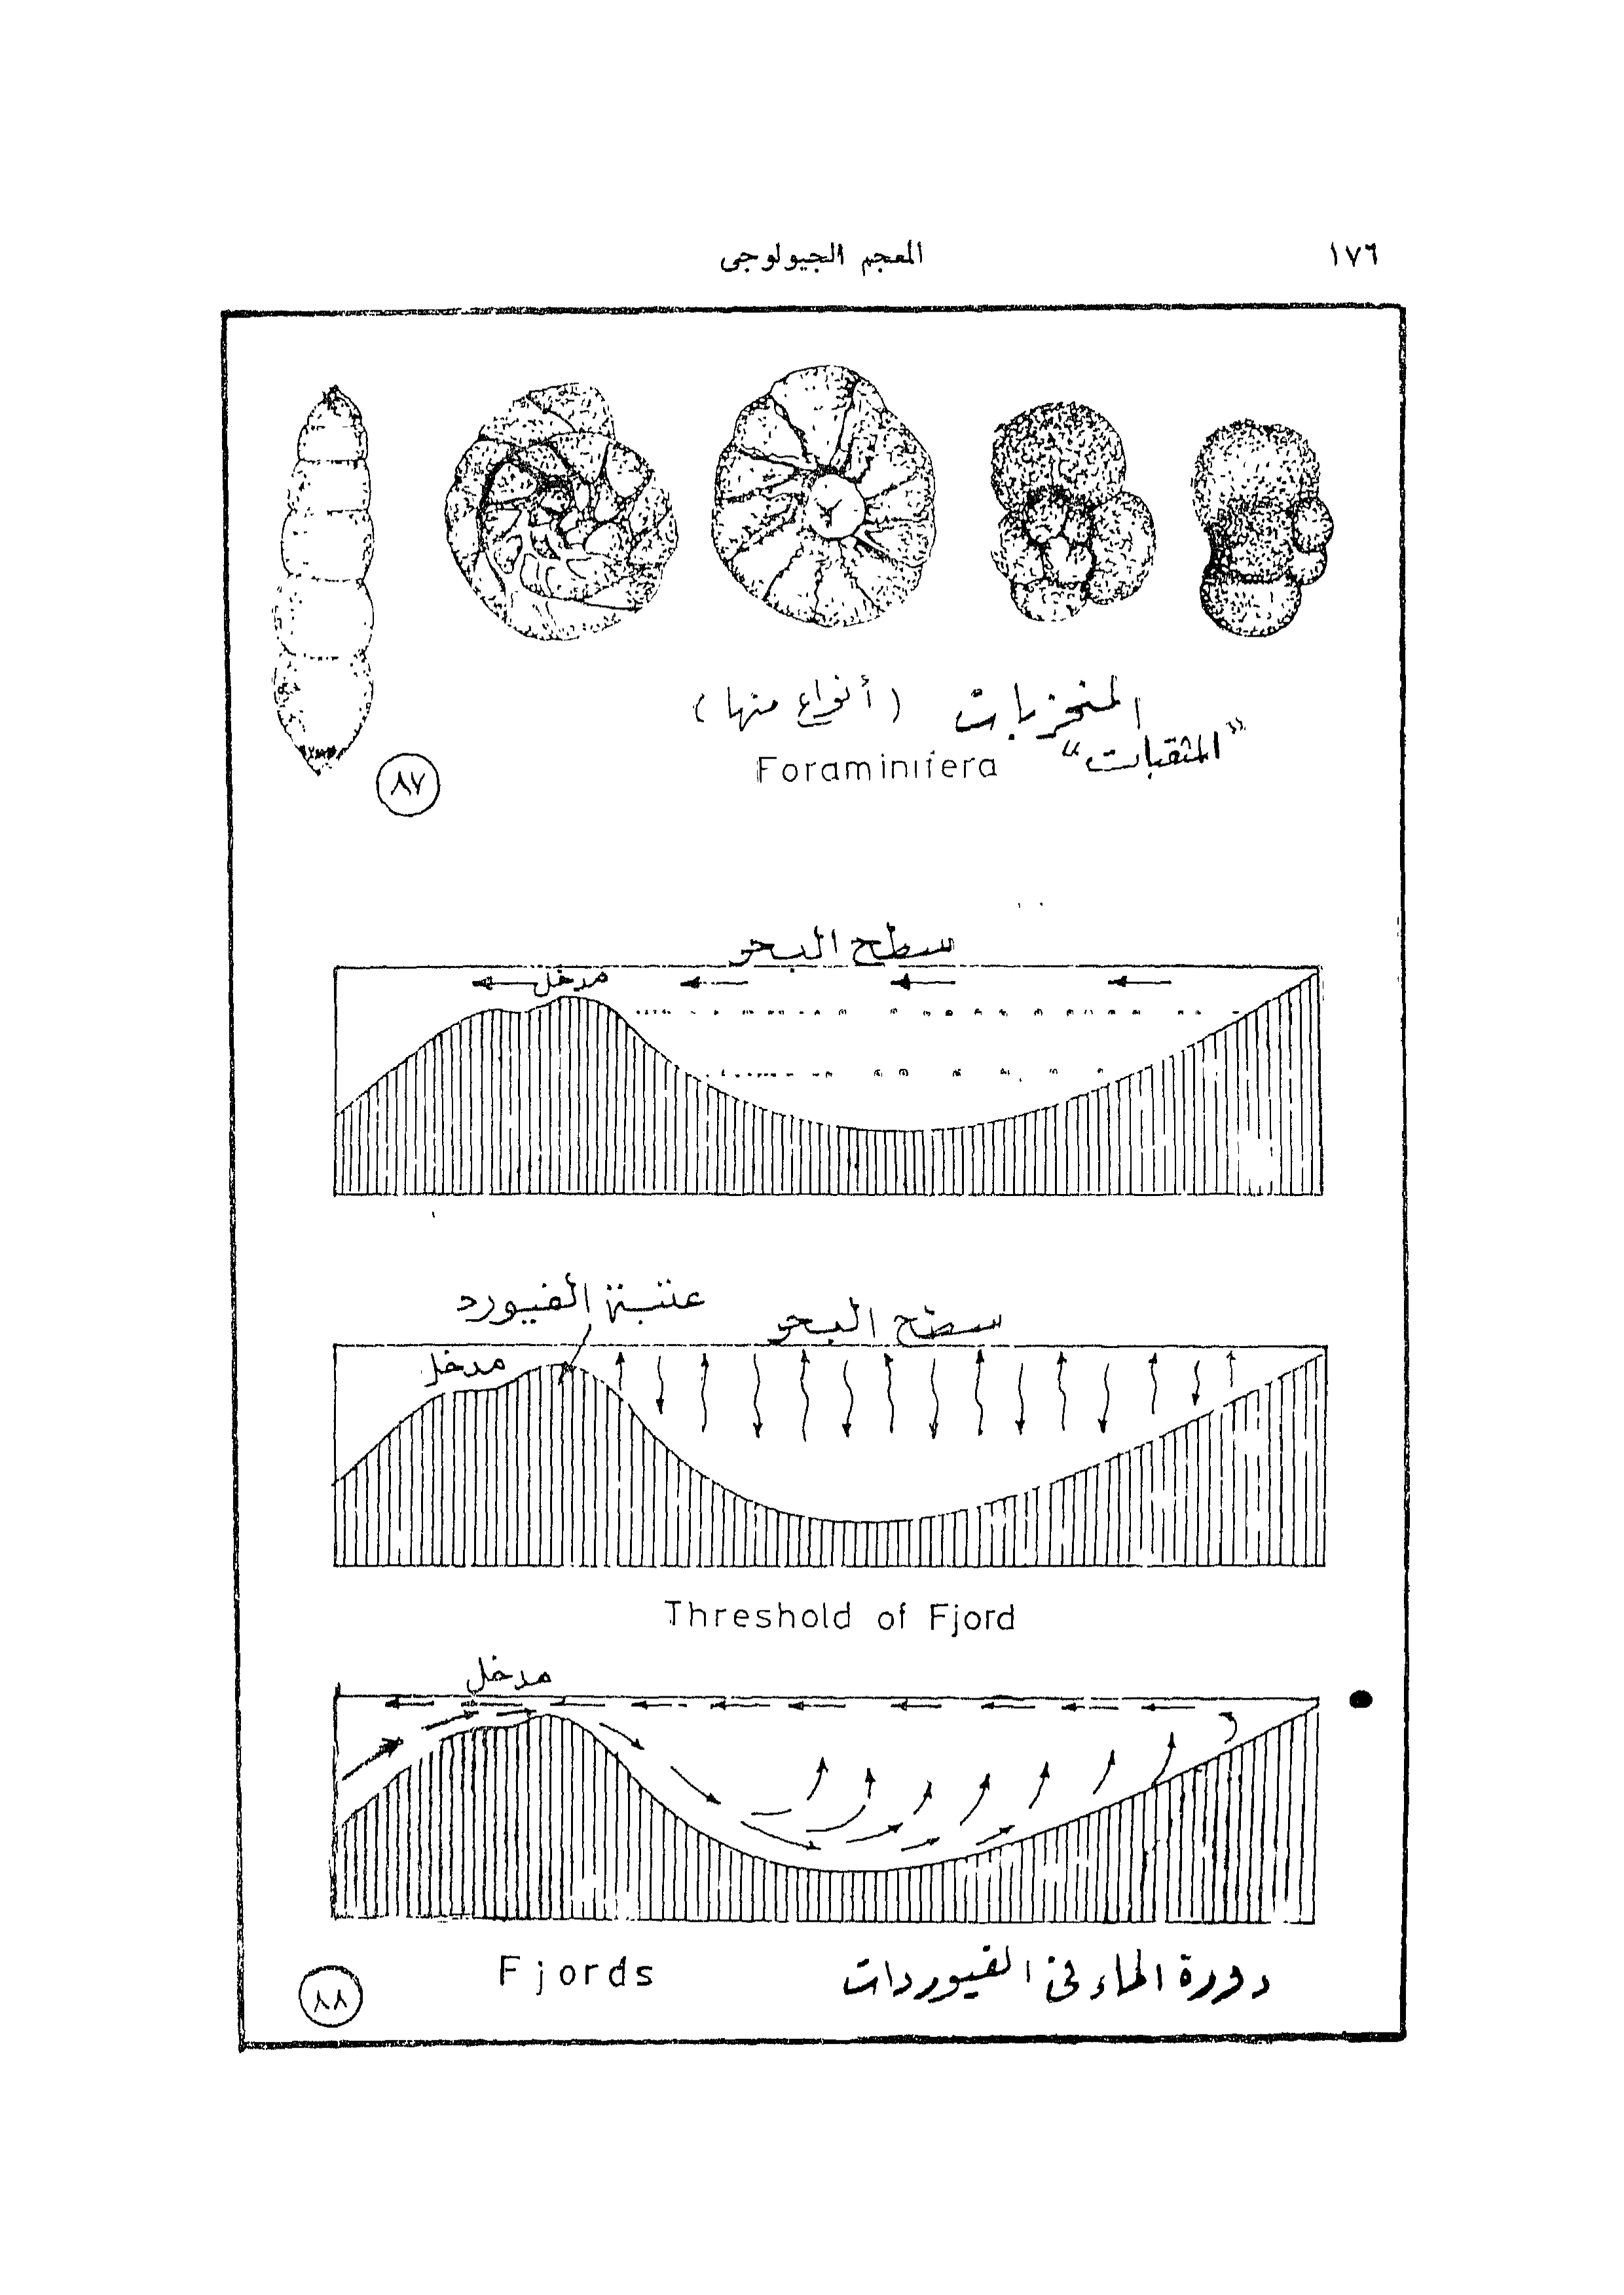 ١٧٦
المعجم الجيولوجى
المنخربات (أنواع منها)
"المثقبات"
Foraminifera
٨٧
سطح البحر
مدخل
عتبة الفيورد
سطح البحر
مدخل
Threshold of Fjord
مدخل
دورة الماء فى الفيوردات
Fjords
٨٨